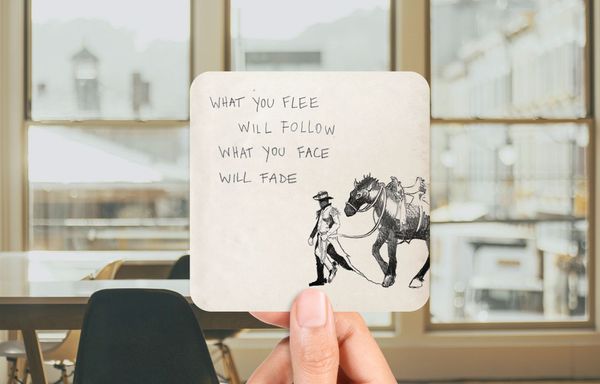 WHAT YOU FLEE
WILL FOLLOW
WHAT YOU FACE
WILL FADE